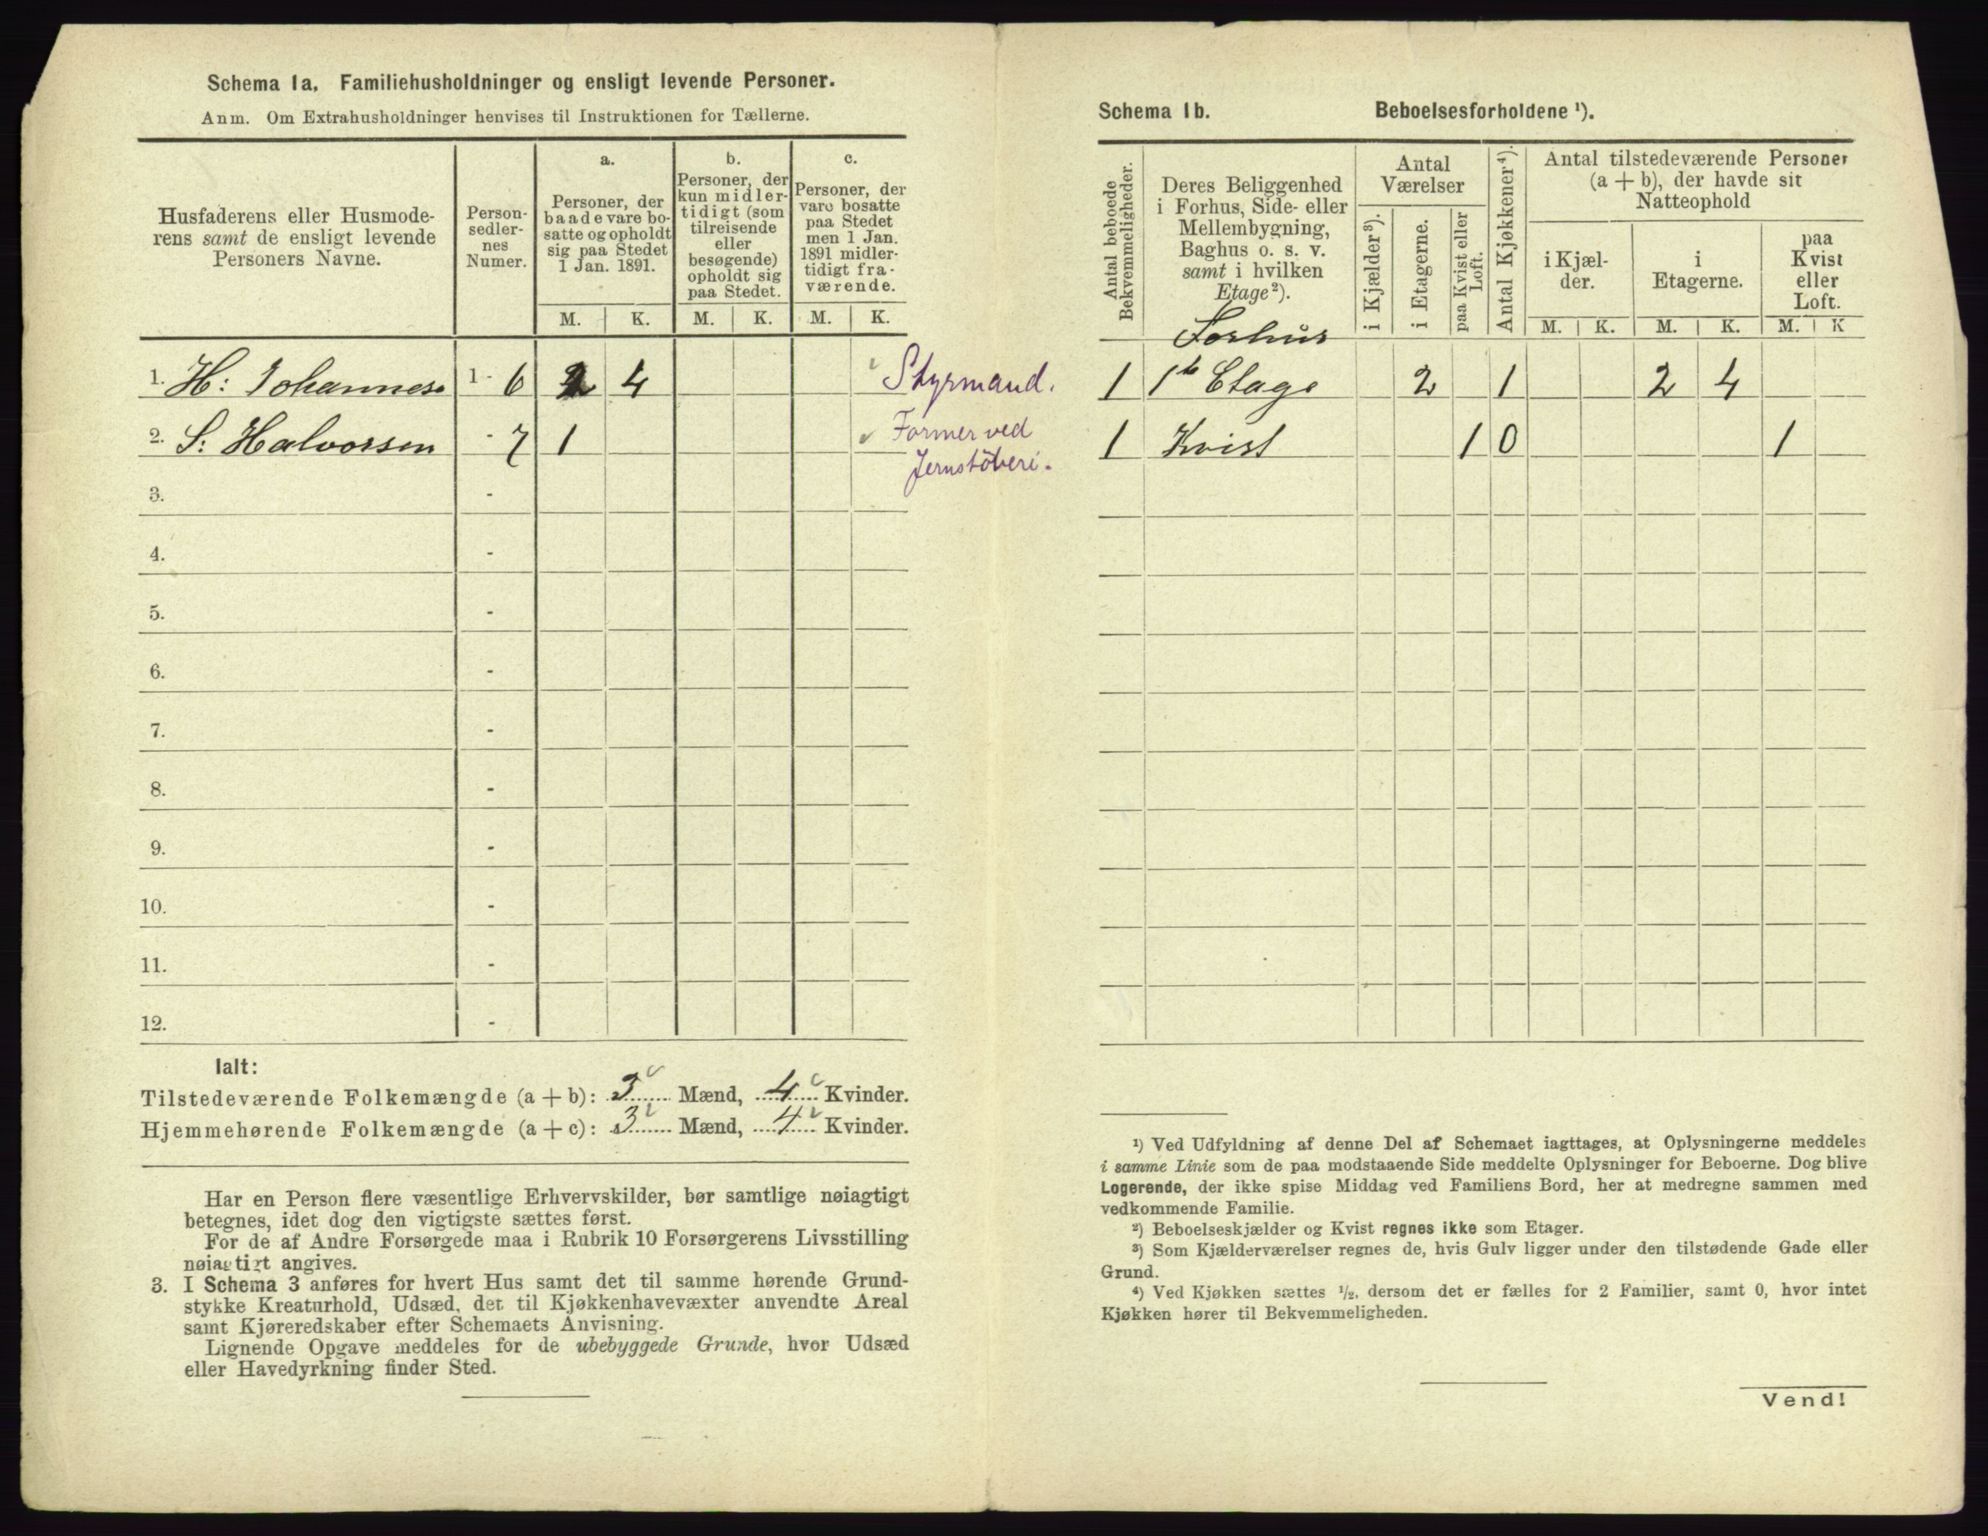 Schema 1a. Familiehusholdninger og ensligt levende Personer.
Anm. Om Extrahusholdninger henvises til Instruktionen for Tællerne.
Husfaderens eller Husmode-
rens samt de ensligt levende
Personers Navne.
Person-
sedler-
nes
Numer.
a.
Personer, der
baade vare bo-
satte og opholdt
sig paa Stedet
1 Jan. 1891.
b.
Personer, der
kun midler-
tidigt (som
tilreisende
eller
besøgende)
opholdt sig
paa Stedet.
c.
Personer, der
vare bosatte
paa Stedet
men 1 Jan.
1891 midler-
tidigt fra-
værende.
M. K. M. K. M. K.
1. H: Johannes 1 - 6 2 4 Styrmand.
2. S: Halvorsen - 7 1 Former ved
Jernstöberi.
3. -
4. -
5. -
6. -
7. -
8. -
9. -
10. -
11. -
12. -
Ialt:
Tilstedeværende Folkemængde (a + b): 3 Mænd, 4 Kvinder.
Hjemmehørende Folkemængde (a + c): 3 Mænd, 4 Kvinder.
Har en Person flere væsentlige Erhvervskilder, bør samtlige nøiagtigt
betegnes, idet dog den vigtigste sættes først.
For de af Andre Forsørgede maa i Rubrik 10 Forsørgerens Livsstilling
nøiagtigt angives.
3. I Schema 3 anføres for hvert Hus samt det til samme hørende Grund-
stykke Kreaturhold, Udsæd, det til Kjøkkenhavevæxter anvendte Areal
samt Kjøreredskaber efter Schemaets Anvisning.
Lignende Opgave meddeles for de ubebyggede Grunde, hvor Udsæd
eller Havedyrkning finder Sted.
Schema 1b. Beboelsesforholdene ¹).
Antal beboede
Bekvemmeligheder.
Deres Beliggenhed
i Forhus, Side- eller
Mellembygning,
Baghus o. s. v.
samt i hvilken
Etage²).
Antal
Værelser
i Kjælder³).
i Etagerne.
paa Kvist eller
Loft.
Antal Kjøkkener⁴).
Antal tilstedeværende Personer
(a + b), der havde sit
Natteophold
i Kjæl-
der.
i
Etagerne.
paa
Kvist
eller
Loft.
M. K. M. K. M. K
Forhus
1 1te Etage 2 1 2 4
1 Kvist 1 0 1
¹) Ved Udfyldning af denne Del af Schemaet iagttages, at Oplysningerne meddeles
i samme Linie som de paa modstaaende Side meddelte Oplysninger for Beboerne. Dog blive
Logerende, der ikke spise Middag ved Familiens Bord, her at medregne sammen med
vedkommende Familie.
²) Beboelseskjælder og Kvist regnes ikke som Etager.
³) Som Kjælderværelser regnes de, hvis Gulv ligger under den tilstødende Gade eller
Grund.
⁴) Ved Kjøkken sættes ½, dersom det er fælles for 2 Familier, samt 0, hvor intet
Kjøkken hører til Bekvemmeligheden.
Vend!